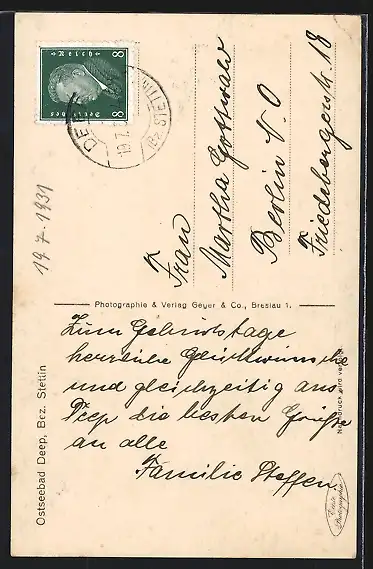 8 8
Deutsches Reich
19.7.
(Bz. STETTIN)
19.7.1931
Frau
Martha Gottwald
Berlin N.O
Friedebergerstr 18
Photographie & Verlag Geyer & Co., Breslau 1.
Zum Geburtstage
herzliche Glückwünsche
und gleichzeitig aus
Deep die besten Grüße
an alle
Familie Steffen.
Ostseebad Deep, Bez. Stettin
Nachdruck wird verfolgt
Echte Photographie